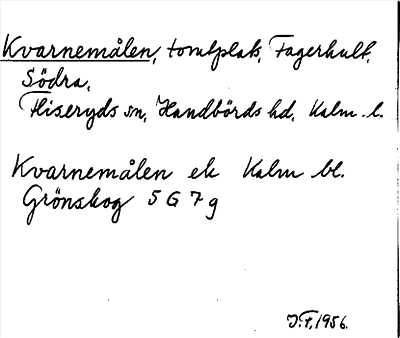 Kvarnemålen, tomtplats, Fagerhult,
Södra,
Fliseryds sn, Handbörds hd, Kalm. l.
Kvarnemålen ek Kalm bl.
Grönskog 5 G 7 g
J.F. 1956.